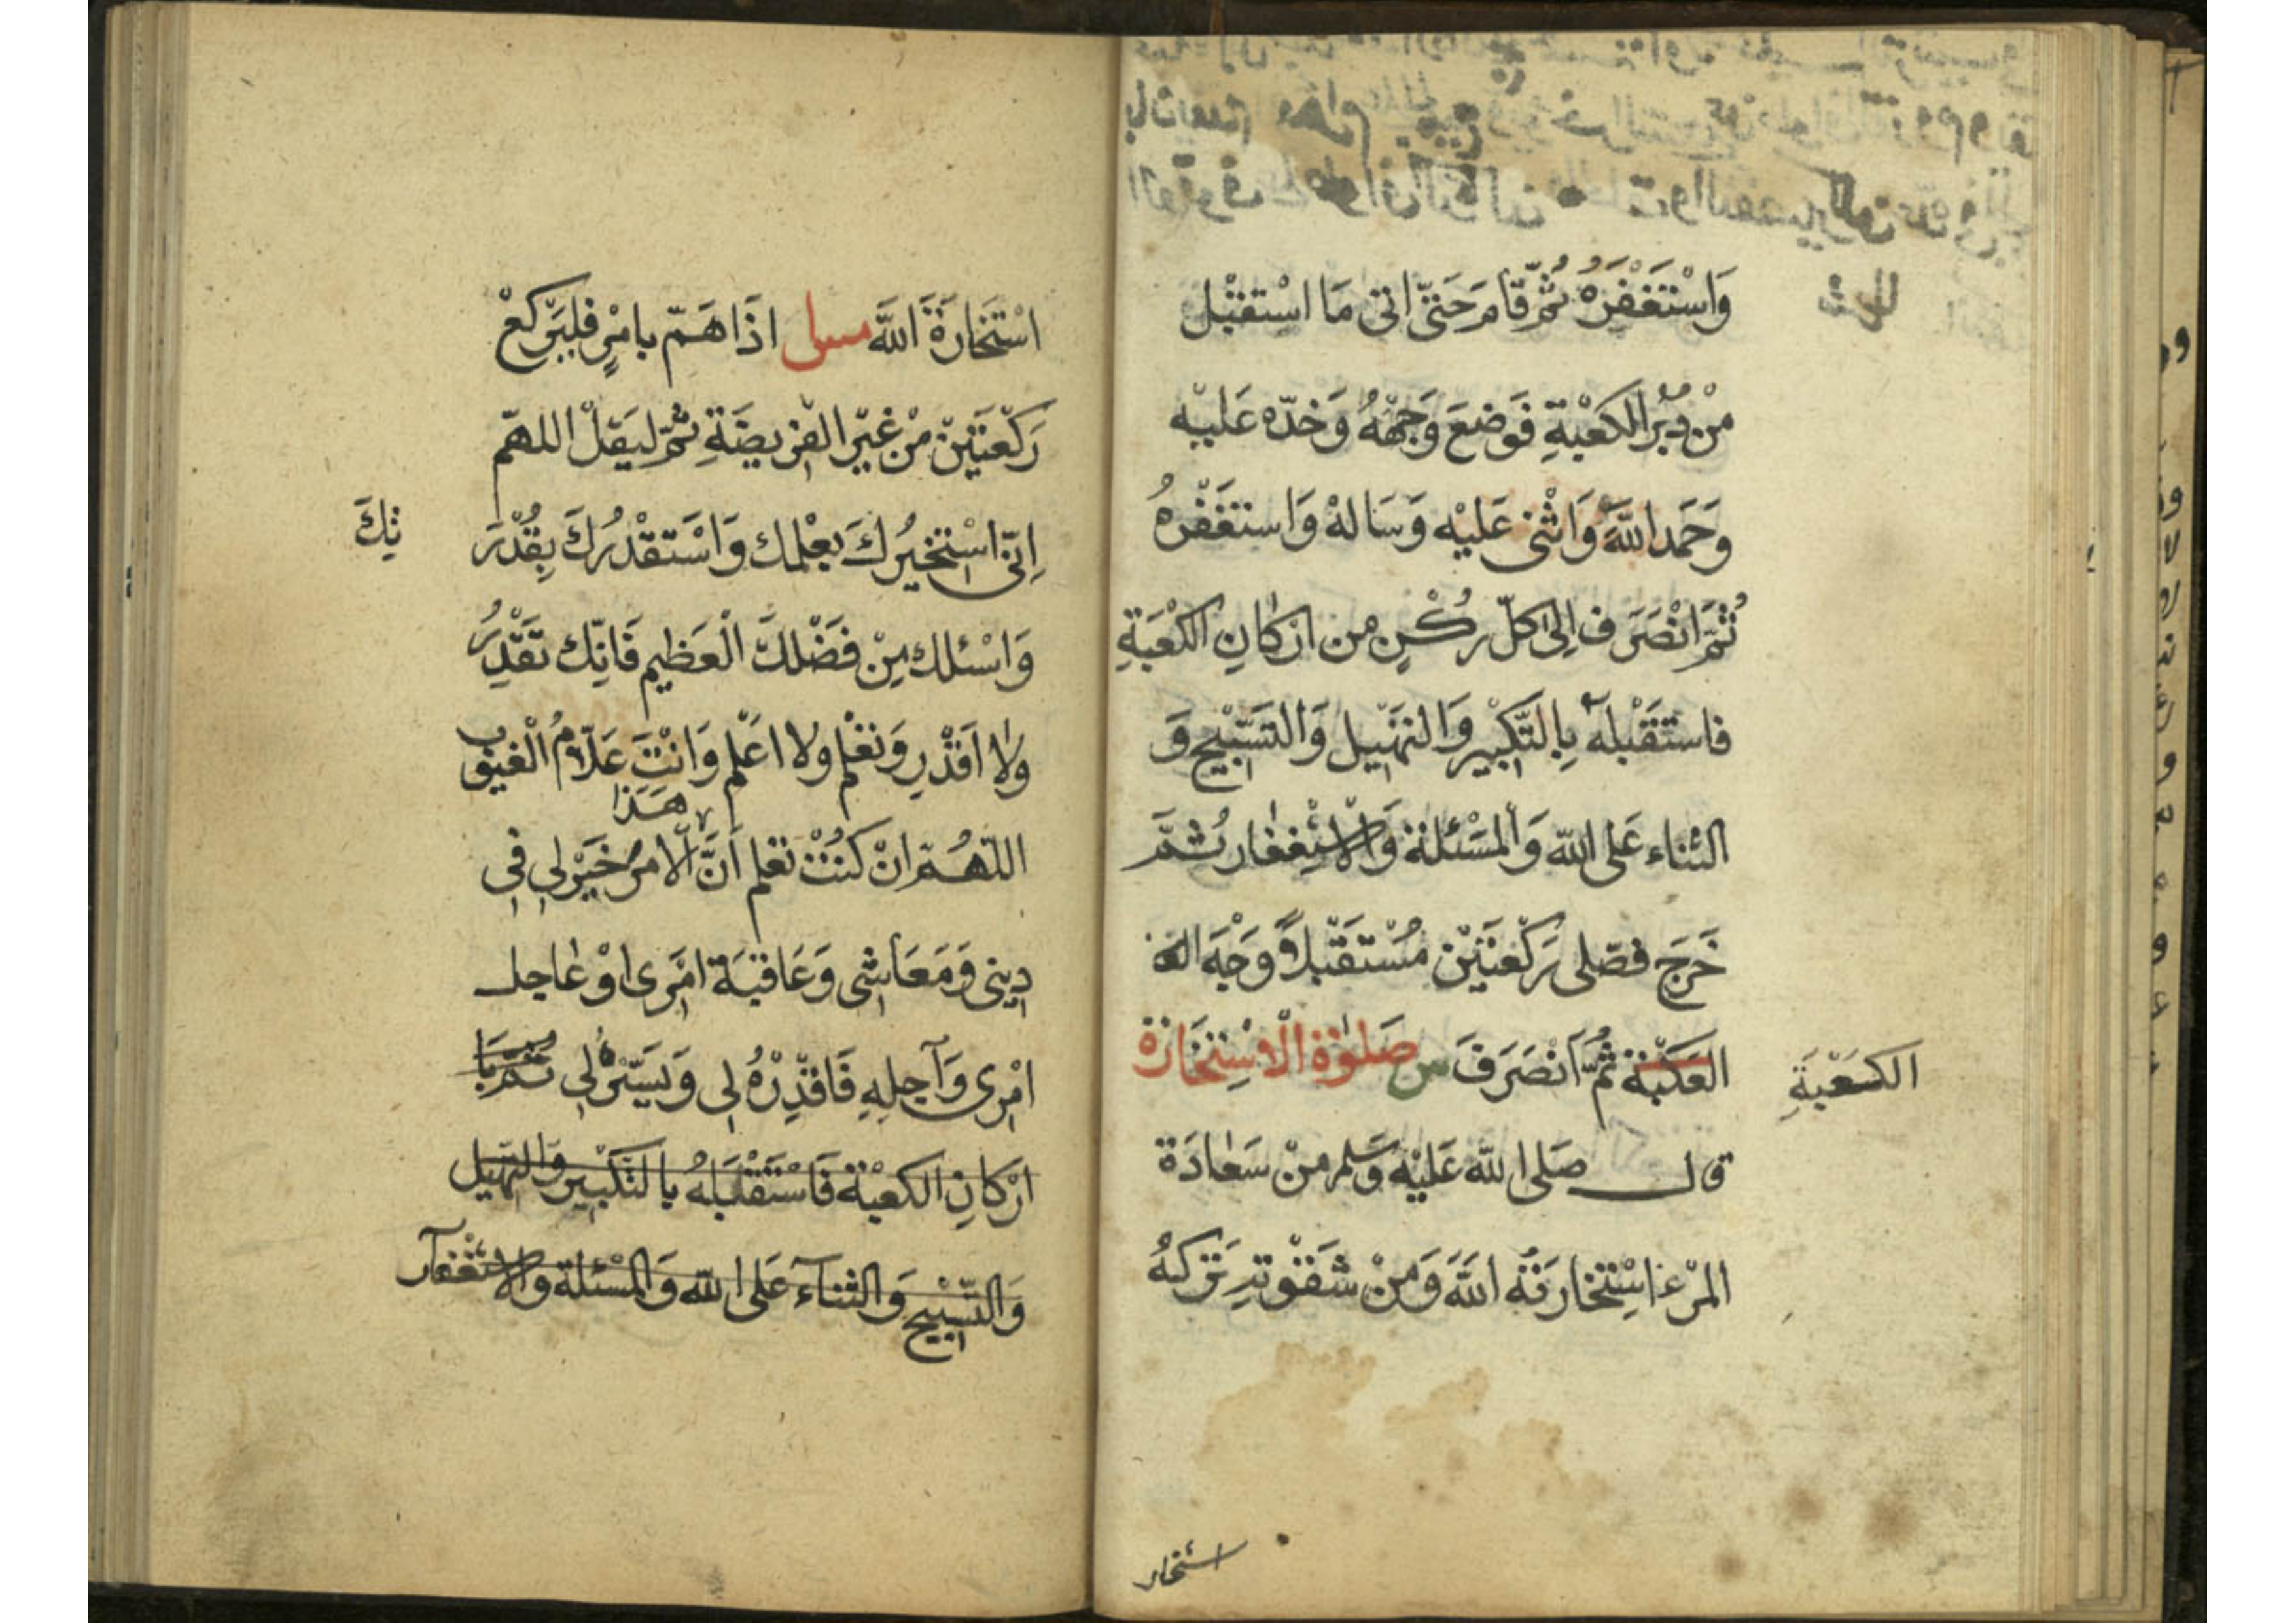 وَاسْتَغْفَرَهُ ثُمَّ قَامَ حَتّى اتى مَا اسْتقبْل
مِنْ دُبُرِ الكَعْبَةِ فَوَضعَ وَجْهَهُ وَخدّه عَليْه
وَحَمَد اللّهَ وَاثْنى عَليْه وَسَالهْ وَاستغَفْرهُ
ثُمَّ انْصَرَف اِلىٰ كلّ رُكْنٍ من اركانِ الكَعْبَةِ
فاستَقْبَلهٗ بِالتَّكبْيرِ وَالتهْليل وَالتَسْبْيحِ وَ
الثناء عَلى اللّه وَالمَسْئلة وَالاسْتِغفار ثُمَّ
خَرَجَ فصَلى رَكْعتَيْن مُسْتَقْبلاً وَجْهَ الكـ
العَكبْة ثُمَّ انْصَرَفَ س صَلوٰة الْاسْتِخَارَة
الكَعْبَةِ
قال صَلى اللّه عَليْه وَسَلم مِنْ سَعادَة
المرْء اسْتِخارَتُه اللّهَ وَمِنْ شَقْوتِهِ تَرْكهُ
استخار
اسْتَخارَةَ اللّهَ اذَا هَمّ بامْرٍ فليَرْكعْ
رَكْعتَيْن مِنْ غيْر الفرْيضَةِ ثمّ ليَقلْ اللهمّ
اِنّى اسْتَخيرُكَ بعْلمك وَاسْتقْدرُكَ بِقُدْرَ
تِكَ
وَاسْئلك مِنْ فَضْلكَ الْعَظيم فَانّك تقْدِرُ
ولا اَقدْرِ وَتعْلم ولا اعَلم وَانْتَ عَلاّمُ الْغيوب
هَذا
اللّهُمّ انْ كنْتُ تعلم اَنَّ الامرَ خَيْر لِى فِى
دِينى وَمَعَاشى وَعَاقبَة امْرى اوْ عاجل
امْرى وَآجلِهِ فَاقدِرْهُ لى وَيَسّرْهُ لى ثُمَّ بَا
ارْكانِ الكعْبَة فَاسْتَقْبَلهُ بالتكْبير وَالتهليل
وَالتّسْبيح وَالثناء عَلى اللّه وَالمسْئلة وَالاسْتغفار